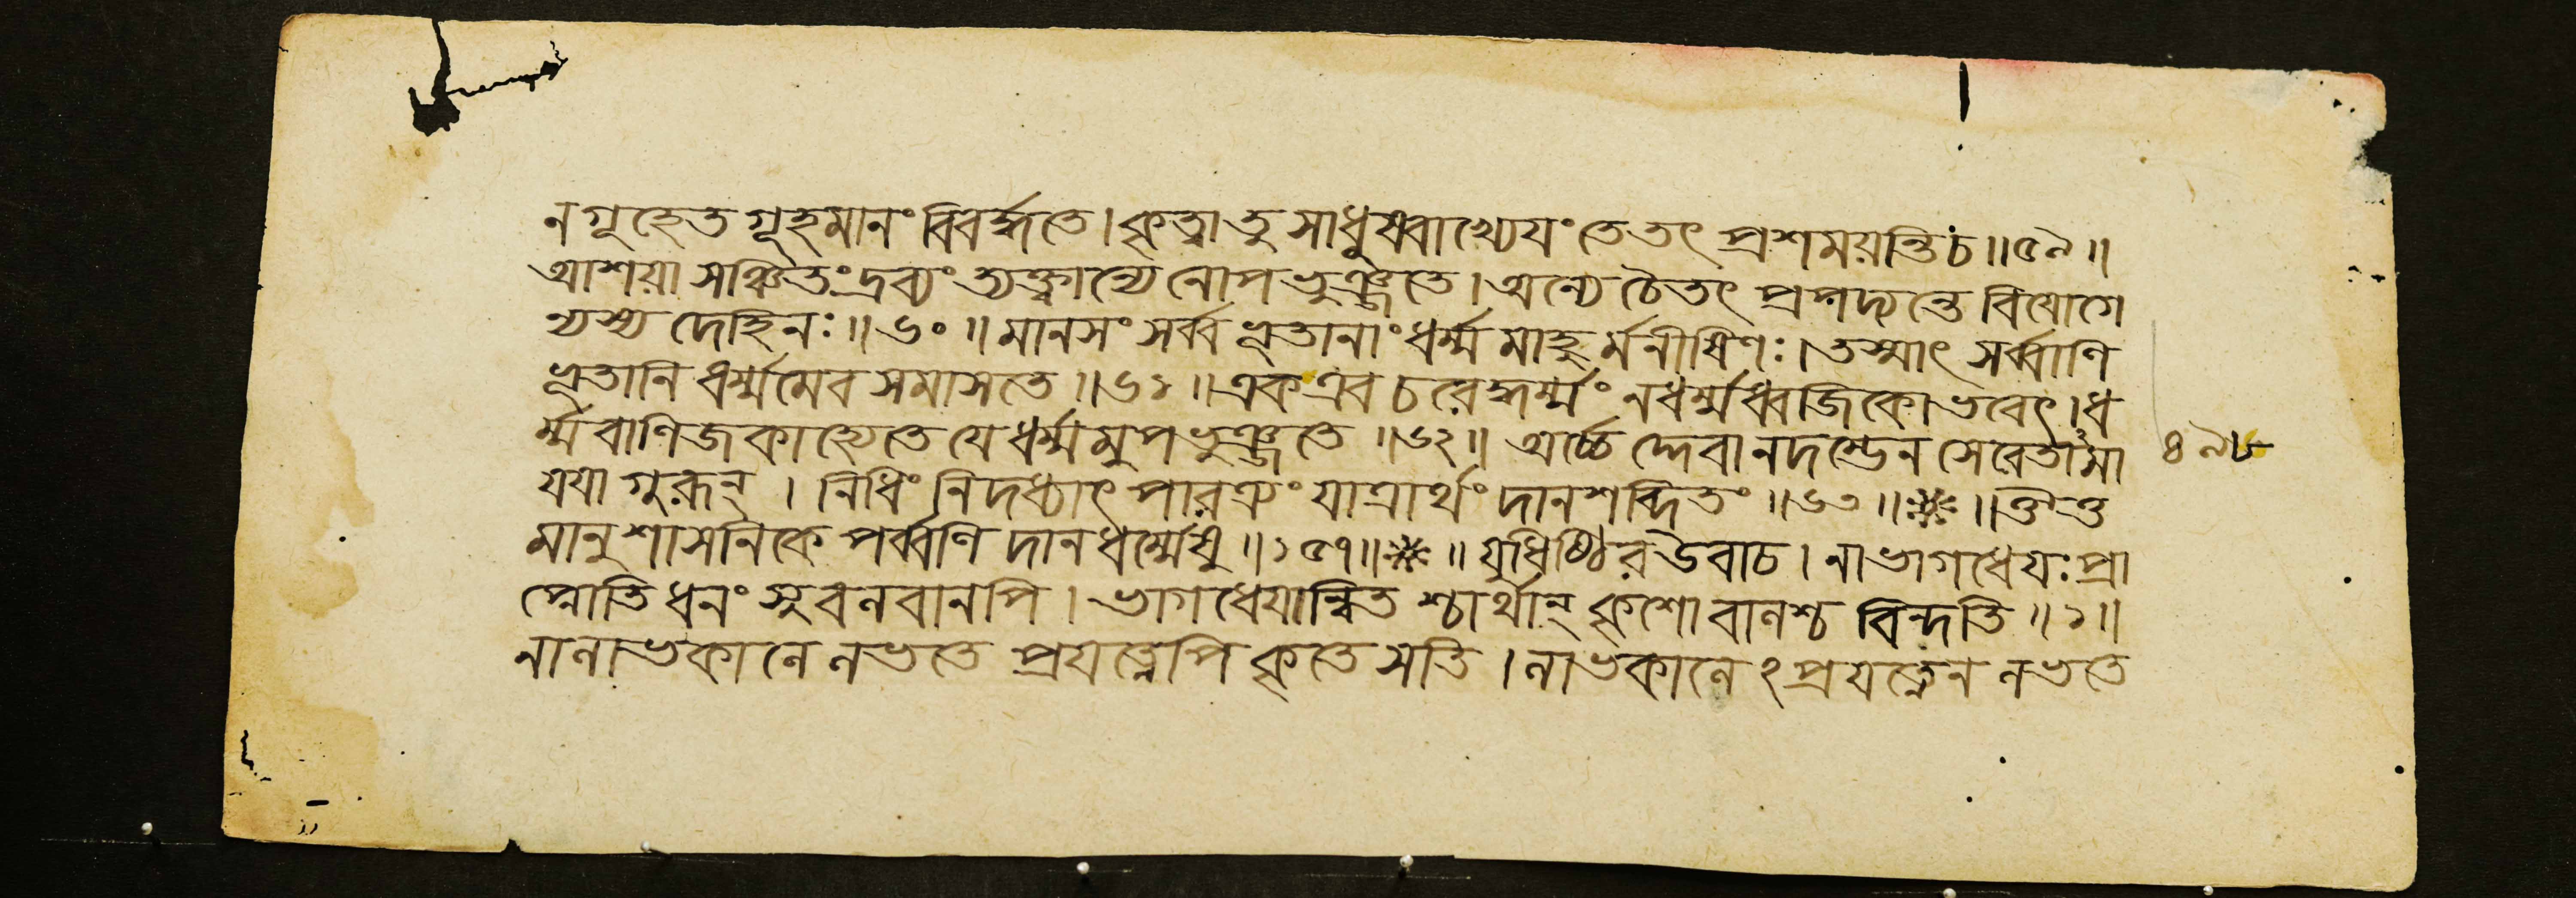 ন গূহেত গূহমানং বিবর্দ্ধতে। কৃত্বা তু সাধুষ্বাখ্যেয়ং তে তৎ প্রশময়ন্তি চ॥৫৯॥
আশয়া সঞ্চিতং দ্রব্যং ত্যক্ত্বান্যেনোপভুঞ্জতে। অন্যে চৈতৎ প্রপদ্যন্তে বিযোগে
ন্যস্য দেহিনঃ॥৬০॥ মানসং সর্ব্বভূতানাং ধর্ম্মমাহুর্মনীষিণঃ। তস্মাৎ সর্ব্বাণি
ভূতানি ধর্ম্মমেব সমাসতে॥৬১॥ এক এব চরেদ্ধর্ম্মং ন ধর্ম্মধ্বজিকো ভবেৎ। ধ
র্ম্মবাণিজকা হ্যেতে যে ধর্ম্মমুপভুঞ্জতে॥৬২॥ অর্চ্চেদ্দেবানদম্ভেন সেবেতামা ৪৯৮
যযা গুরূন্। নিধিং নিদধ্যাৎ পারত্রং যাত্রার্থং দানশব্দিতং॥৬৩॥❈॥
মানুশাসনিকে পর্ব্বণি দানধর্ম্মেষু॥১৫৭॥❈॥ যুধিষ্ঠির উবাচ। নাভাগধেযঃ প্রা
প্নোতি ধনং সুবলবানপি। ভাগধেযান্বিতশ্চার্থান্ কৃশো বালশ্চ বিন্দতি॥১॥
নালাভকালে লভতে প্রযত্নেপি কৃতে সতি। লাভকালেঽপ্রযত্নেন লভতে